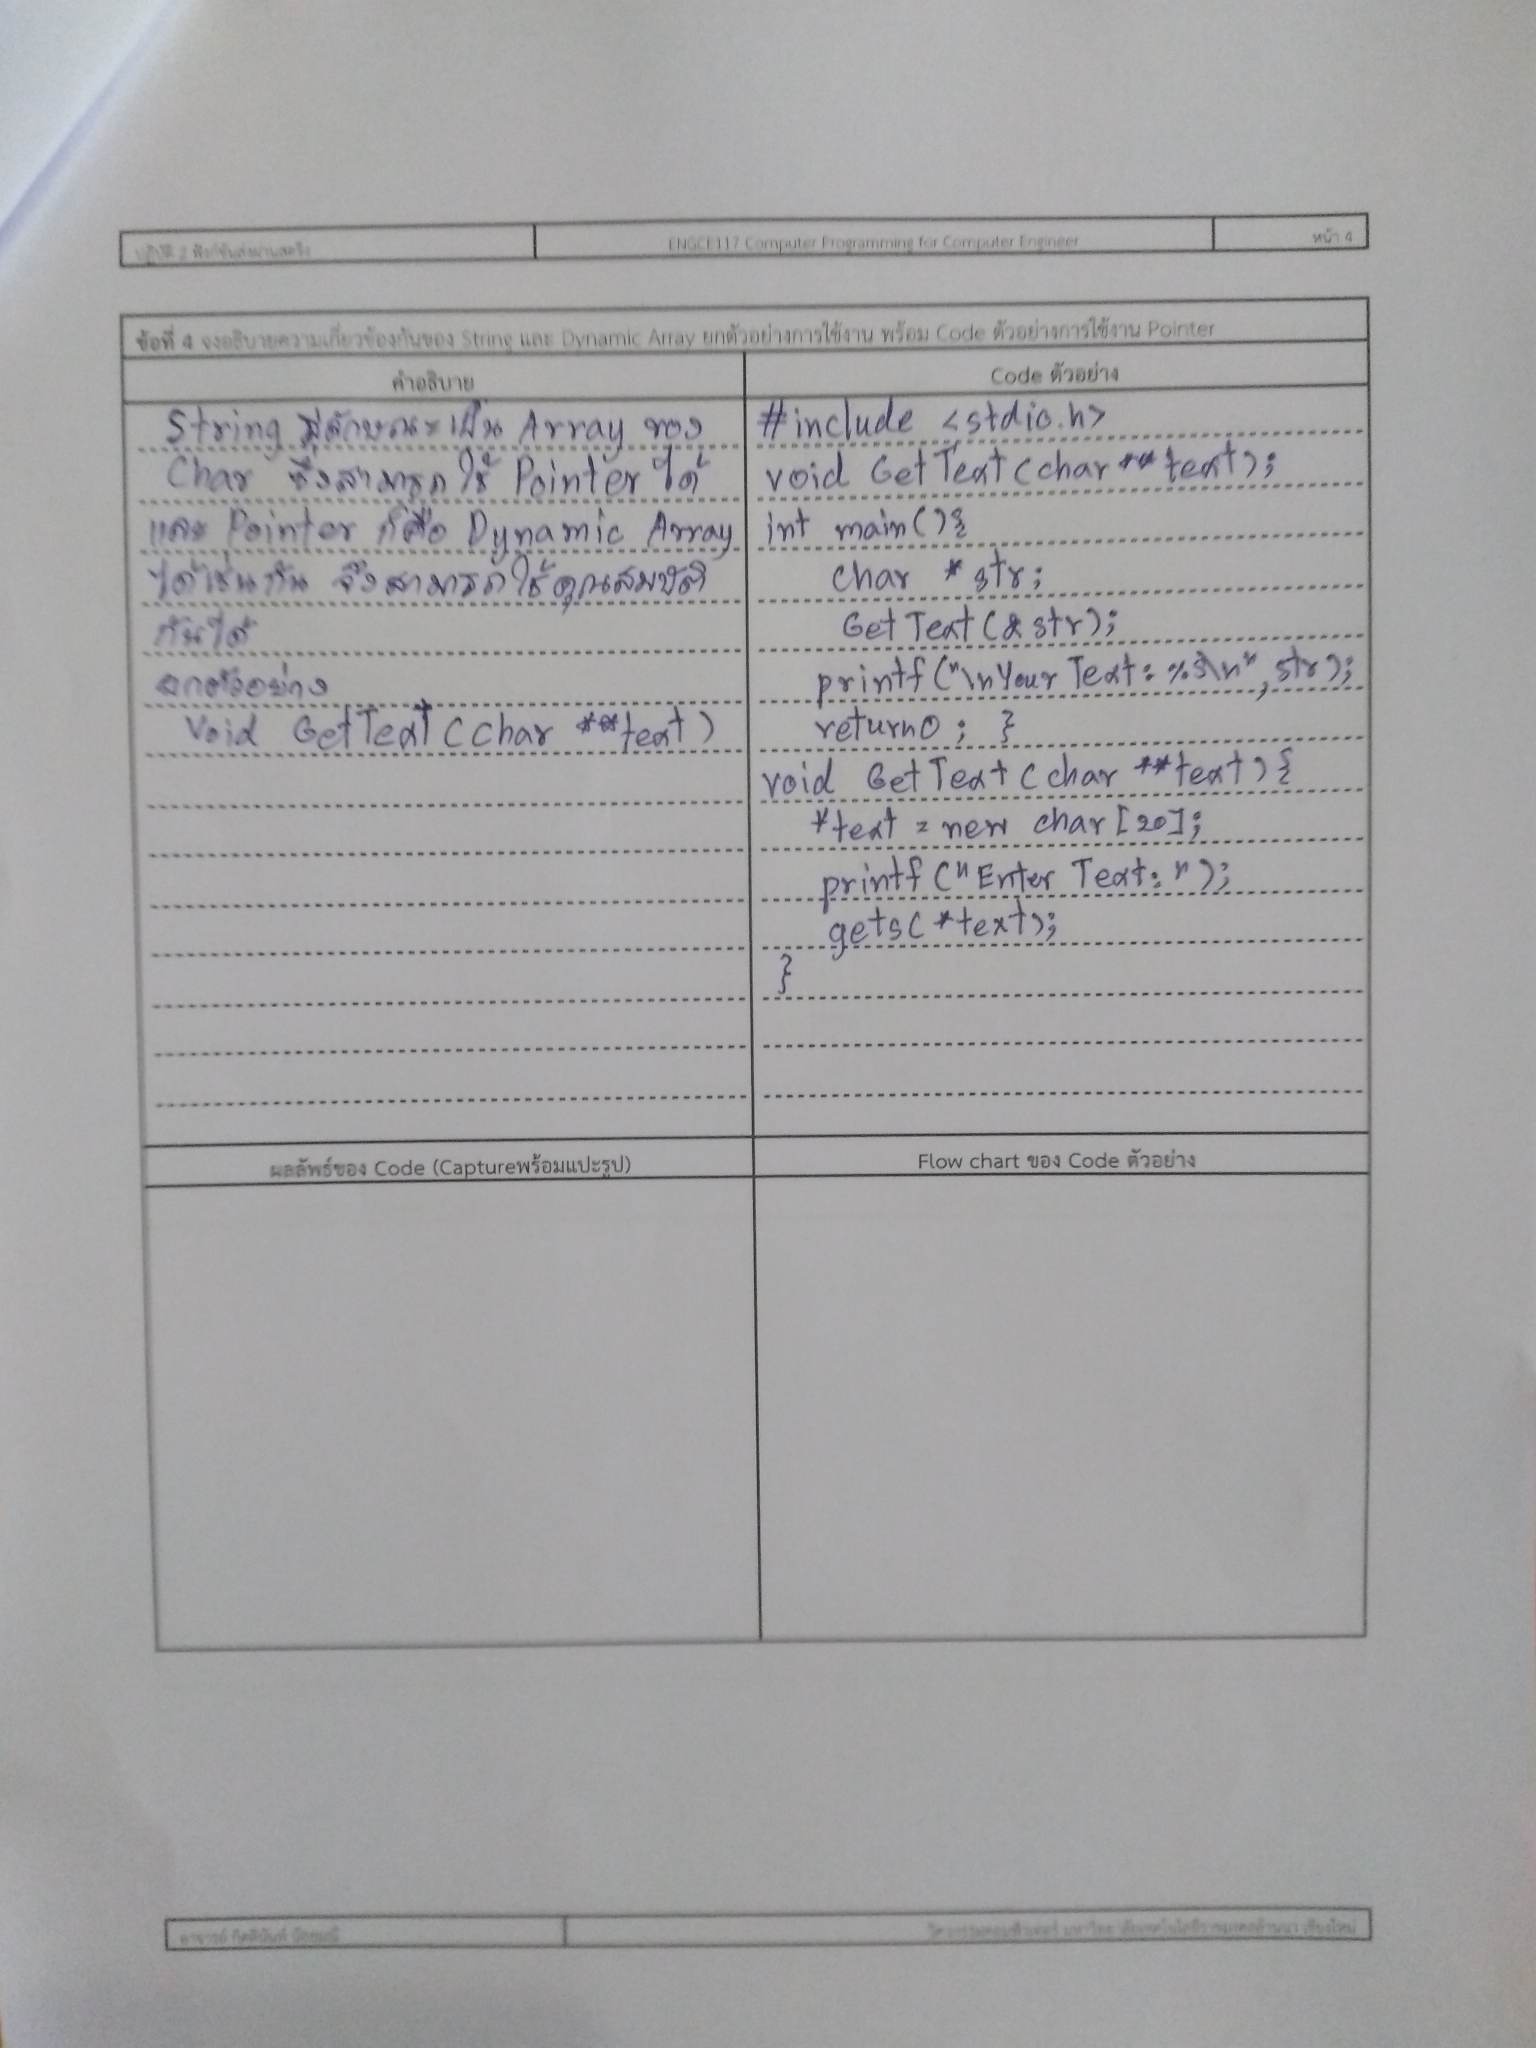 ปฏิบัติ 2 ฟังก์ชันส่งผ่านสตริง
ENGCE117 Computer Programming for Computer Engineer
หน้า 4
ข้อที่ 4 จงอธิบายความเกี่ยวข้องกันของ String และ Dynamic Array ยกตัวอย่างการใช้งาน พร้อม Code ตัวอย่างการใช้งาน Pointer
คำอธิบาย
String มีลักษณะเป็น Array ของ
Char ซึ่งสามารถใช้ Pointer ได้
และ Pointer ก็คือ Dynamic Array
ได้เช่นกัน จึงสามารถใช้คุณสมบัติ
กันได้
ยกตัวอย่าง
Void GetText (char **text)
Code ตัวอย่าง
#include <stdio.h>
void GetText (char **text);
int main(){
char *str;
GetText (&str);
printf ("\nYour Text: %s\n", str);
return0; }
void GetText (char **text){
*text = new char [20];
printf ("Enter Text: ");
gets( *text);
}
ผลลัพธ์ของ Code (Captureพร้อมแปะรูป)
Flow chart ของ Code ตัวอย่าง
อาจารย์ กิตตินันท์
วิศวกรรมคอมพิวเตอร์ มหาวิทยาลัยเทคโนโลยีราชมงคลล้านนา เชียงใหม่